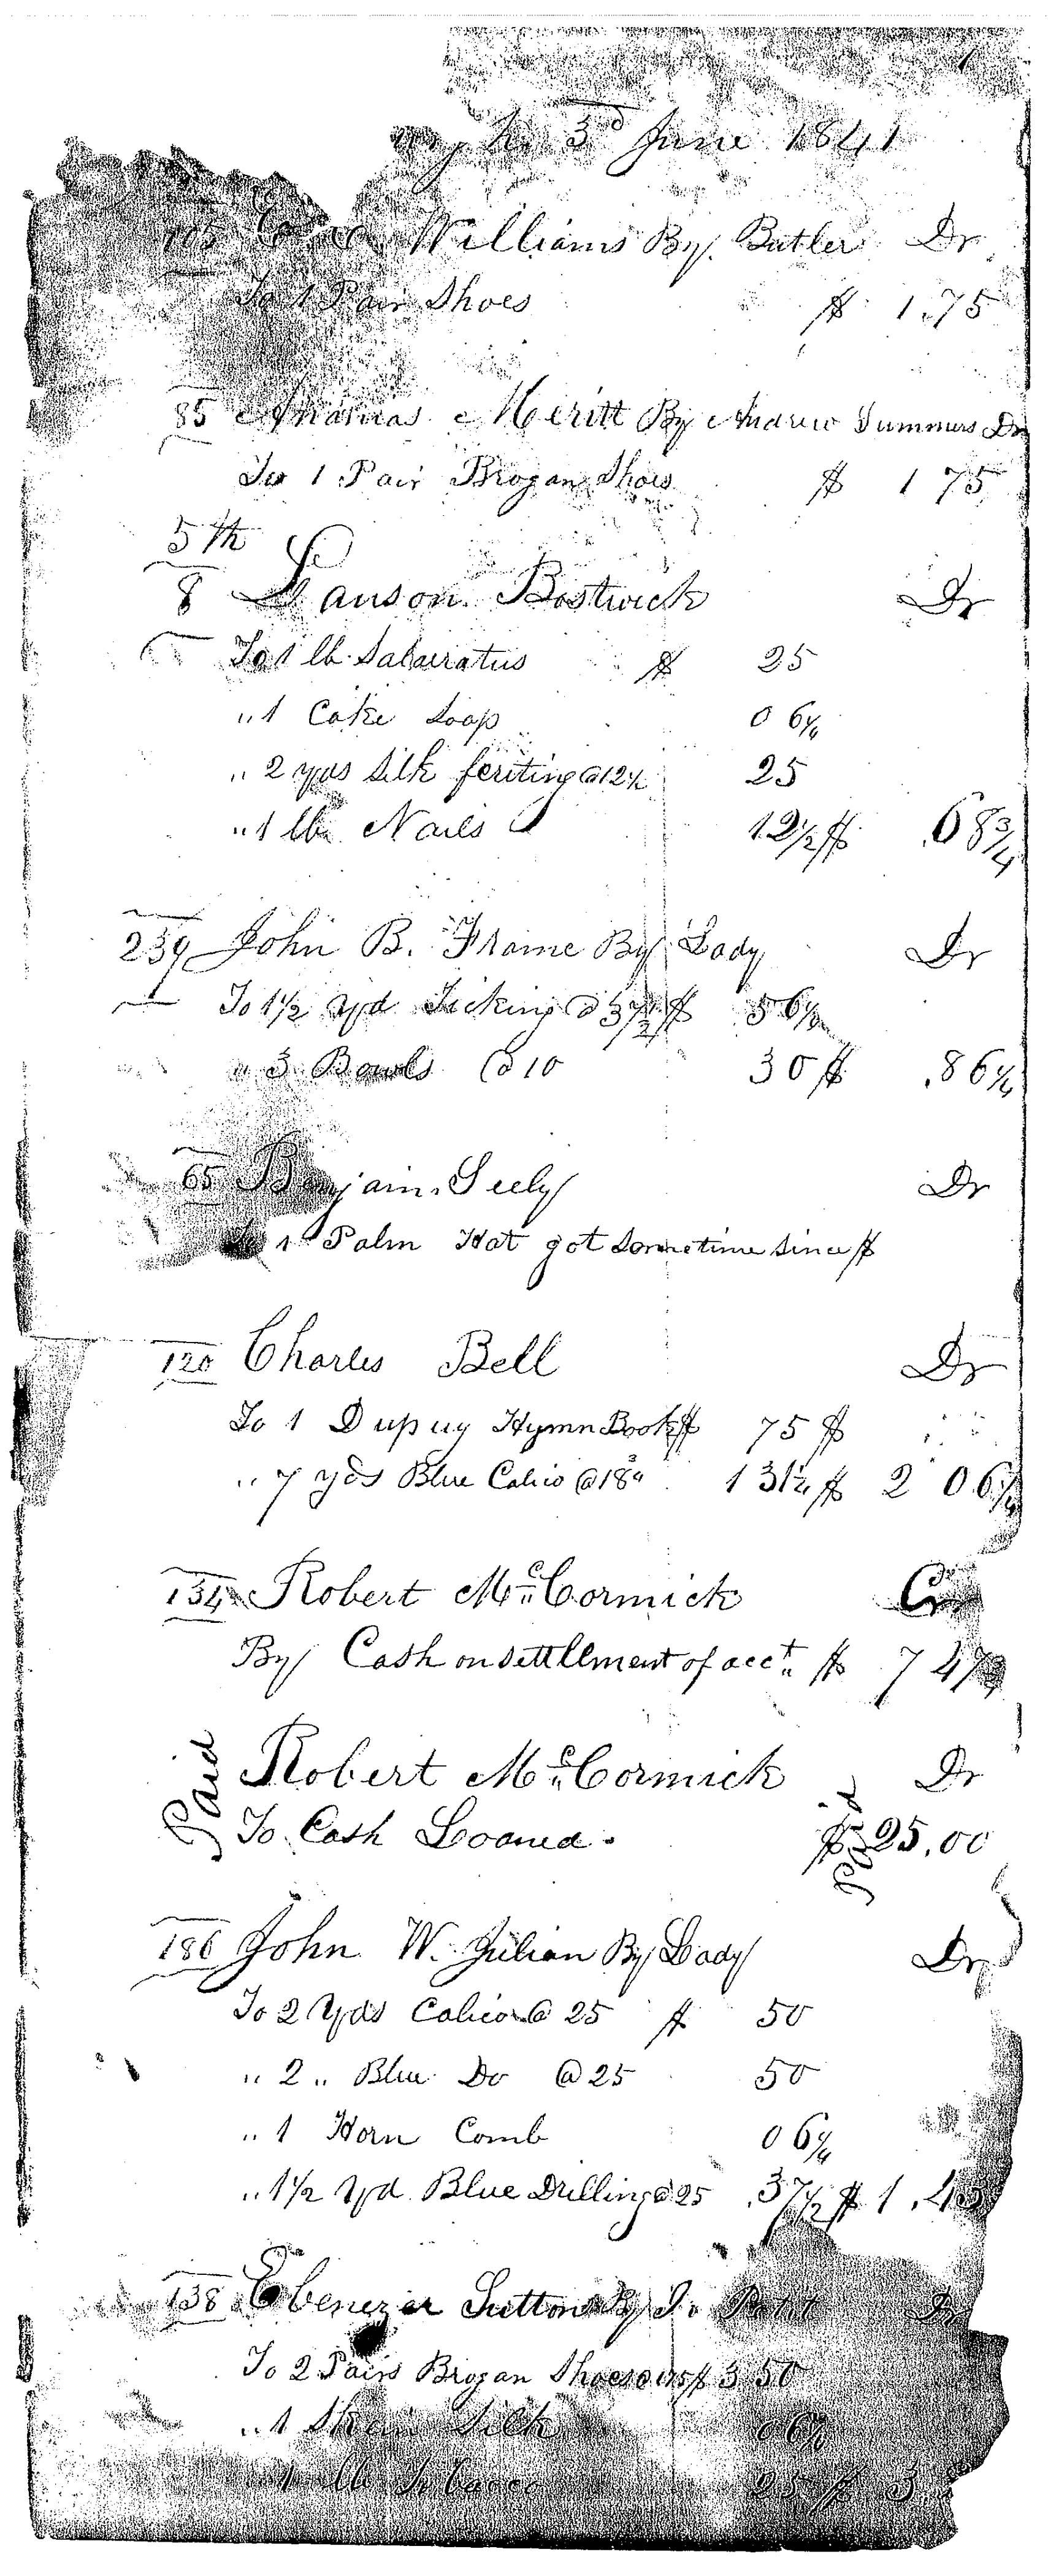 3d June 1841
Williams By Butler Dr
To 1 Pair Shoes $ 1.75
85 Ananias Meritt By Andrew Summers Dr
To 1 Pair Brogan Shoes $ 1 75
5th
8 Lanson Bostwick Dr
To 1 lb Salaeratus $ 25
" 1 Cake Soap 0 6¼
" 2 yds Silk feriting @ 12½ 25
" 1 lb Nails 12½ $ .68¾
239 John B. Frame By Lady Dr
To 1½ yd Ticking @ 37½ $ 56¼
" 3 Bowls @ 10 30 $ .86¼
65 Benjain Seely Dr
To 1 Palm Hat got sometime since $
120 Charles Bell Dr
To 1 Dupuy Hymn Book $ 75 $
" 7 yds Blue Calico @ 18¾ 1 31¼ $ 2 06¼
134 Robert Mc Cormick Cr
By Cash on settllment of acct $ 7 47
Paid Robert Mc Cormick Dr
To Cash Loaned $ 25.00 Paid
186 John W. Julian By Lady Dr
To 2 Yds Calico @ 25 $ 50
" 2 " Blue Do @ 25 50
" 1 Horn Comb 0 6¼
" 1½ Yd Blue Drilling @ 25 .37½ $ 1.43
138 Ebenezer Sutton By Dr
To 2 Pairs Brogan Shoes $ 3 50
" 1 Skein Silk 06¼
" 1 lb Tobacco 25 $ 3